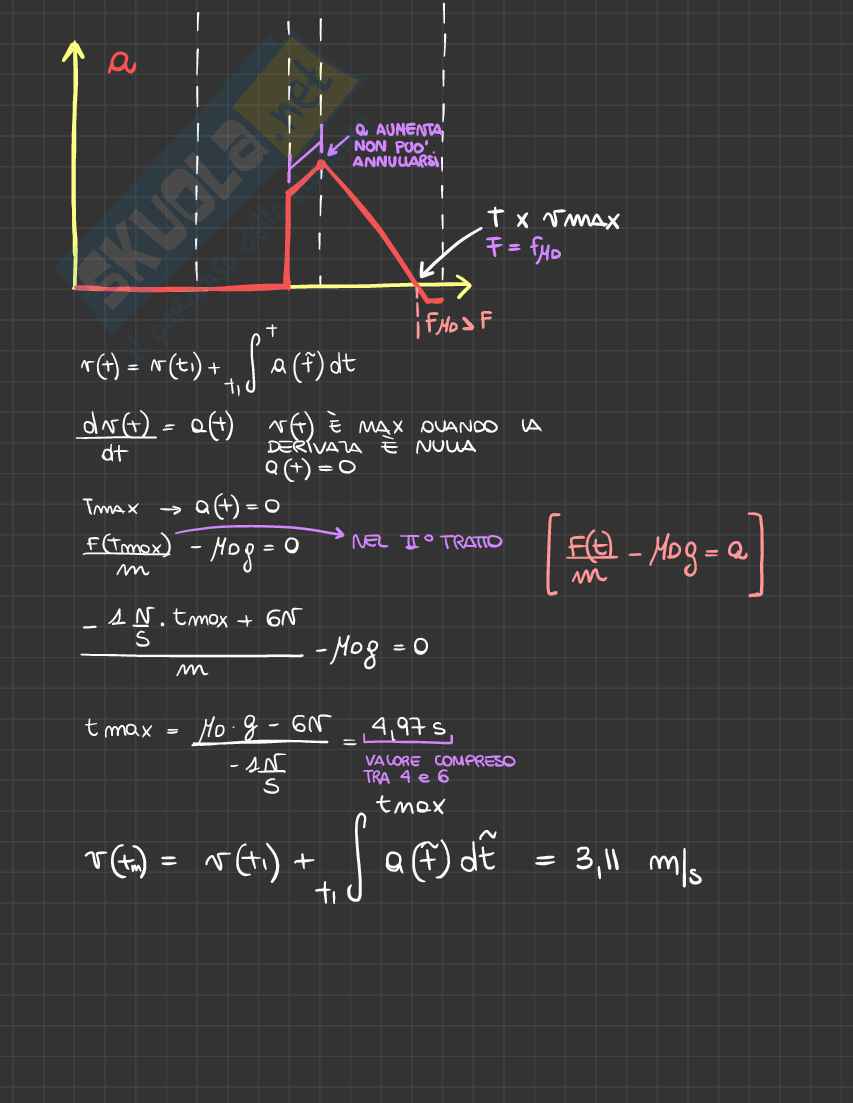 a
SKUOLA.net
a AUMENTA
NON PUO'
ANNULLARSI
T x vmax
F = fμD
FμD > F
v(t) = v(t1) + ∫t1^t a(t̃) dt
dv(t)/dt = a(t) v(t) È MAX QUANDO LA
DERIVATA È NULLA
a(t) = 0
Tmax → a(t) = 0
F(Tmax)/m - μDg = 0 NEL II° TRATTO
[F(t)/m - μDg = a]
(- 1 N/S · tmax + 6N)/m - μDg = 0
tmax = (μD · g - 6N)/(-1N/S) = 4,97 s
VALORE COMPRESO
TRA 4 e 6
v(tm) = v(t1) + ∫t1^tmax a(t̃) dt̃ = 3,11 m/s